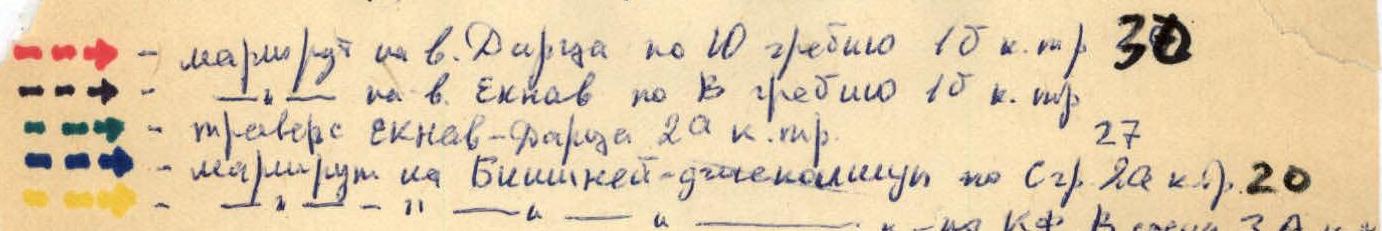 - маршрут на в. Дарза по Ю гребню 1б к.тр 30
- —"— на в. Екнав по В гребню 1б к. тр
- траверс Екнав-Дарза 2а к.тр. 27
- маршрут на по С гр. 2а к.тр. 20
- —"— - " — " — " — " - по КФ В 3А к